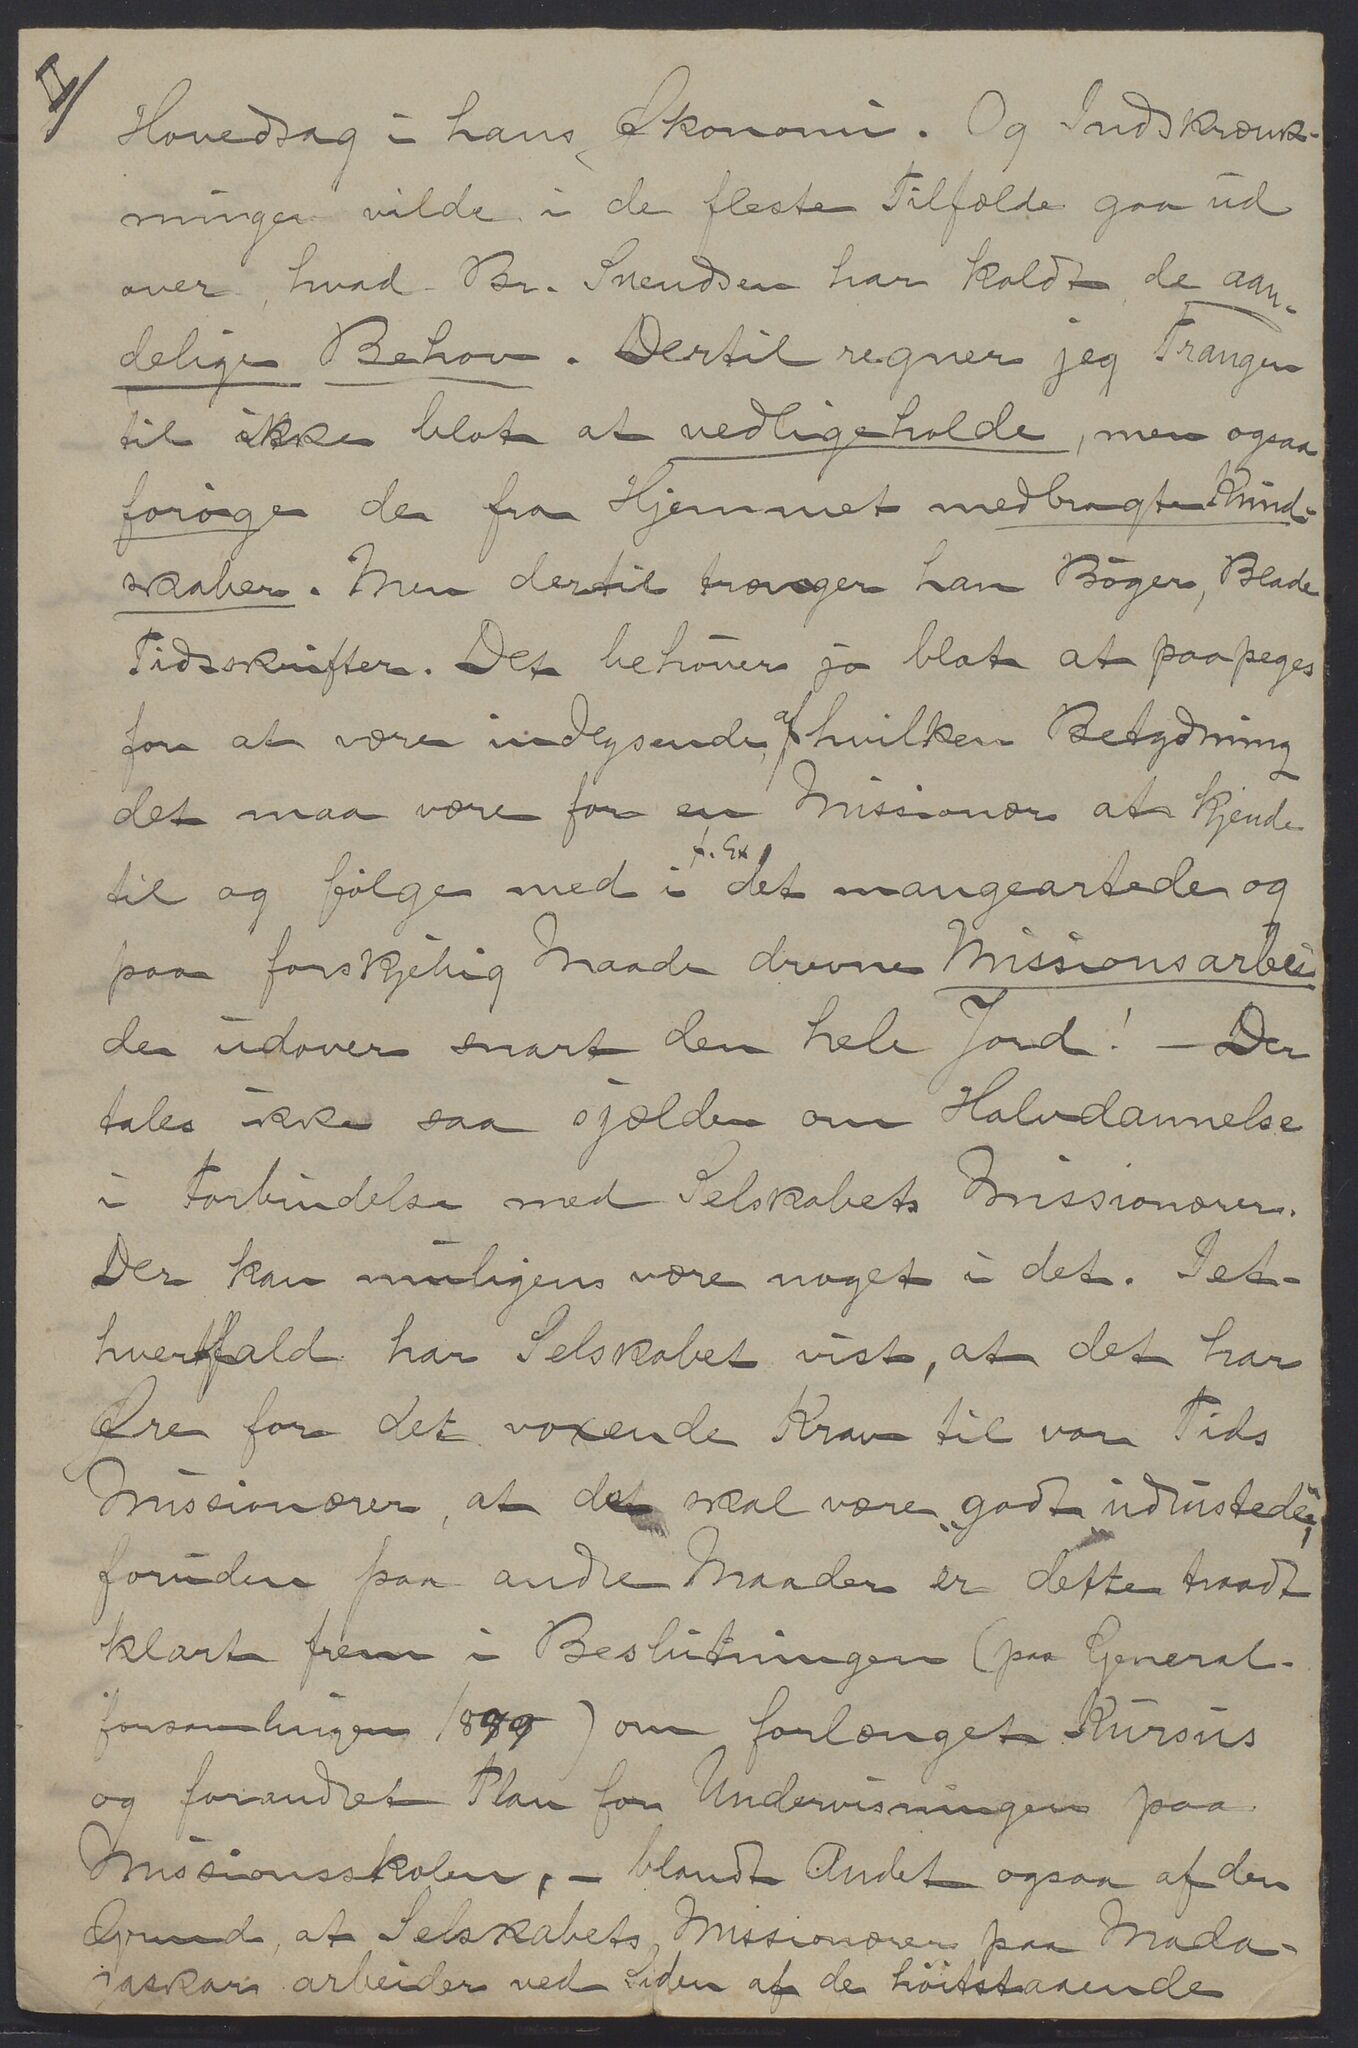 Hovedsag i hans Økonomi. Og Indskrænk-
ninger vilde i de fleste Tilfælde gaa ud
over, hvad Br. Svendsen har kaldt de aan-
delige Behov. Dertil regner jeg Trangen
til ikke blot at vedligeholde, men ogsaa
forøge de fra Hjemmet medbragte Kund-
skaber. Men dertil trænger han Bøger, Blade
Tidsskrifter. Det behøver jo blot at paapeges
for at være indlysende, af hvilken Betydning
det maa være for en Missionær at kjende
til og følge med i t. Ex. det mangeartede og
paa forskjelig Maade drevne Missionsarbei
de udover snart den hele Jord! - Der
tales ikke saa sjelden om Halvdannelse
i Forbindelse med Selskabets Missionærer.
Der kan muligens være noget i det. Iet-
hvertfald har Selskabet vist, at det har
Øre for det voxende Krav til vor Tids
Missionærer, at det skal være "godt udrustede",
foruden paa andre Maader er dette traadt
klart frem i Beslutningen (paa General-
forsamlingen 1899) om forlænget Kursus
og forandret Plan for Undervisningen paa
Missionsskolen, - blandt Andet ogsaa af den
Grund, at Selskabets Missionærer paa Mada-
gaskar arbeider ved Siden af de høitstaaende